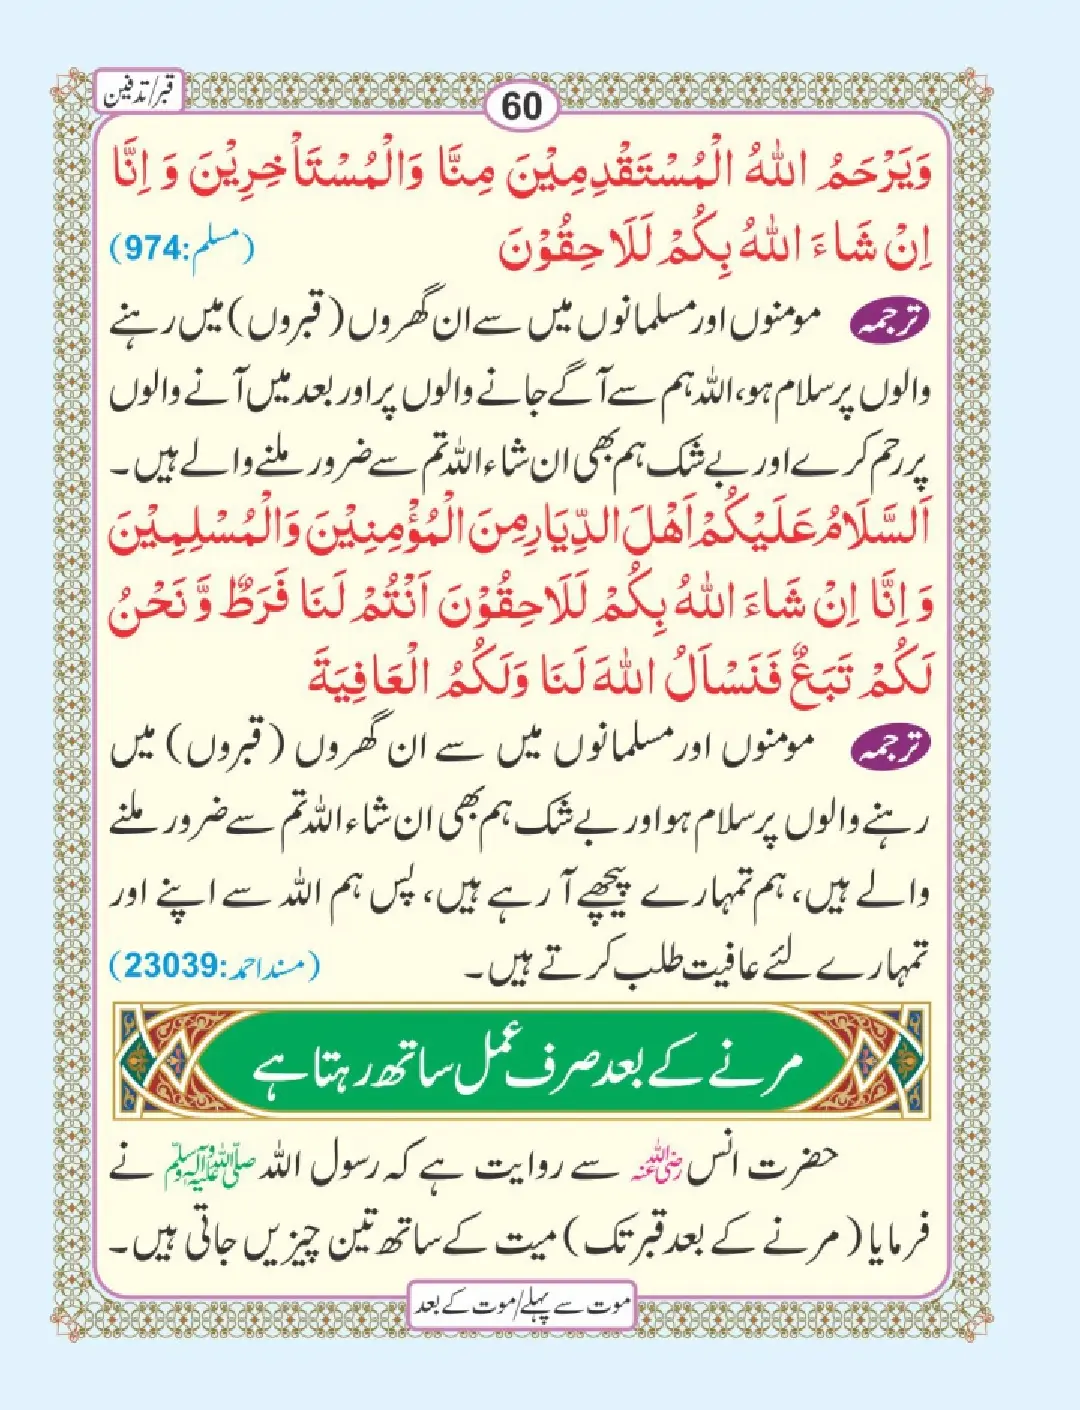 قبر/تدفین
60
وَيَرْحَمُ اللهُ الْمُسْتَقْدِمِيْنَ مِنَّا وَالْمُسْتَأْخِرِيْنَ وَ اِنَّا
اِنْ شَاءَ اللهُ بِكُمْ لَلَاحِقُوْنَ (مسلم:974)
ترجمہ مومنوں اور مسلمانوں میں سے ان گھروں (قبروں) میں رہنے
والوں پر سلام ہو، اللہ ہم سے آگے جانے والوں پر اور بعد میں آنے والوں
پر رحم کرے اور بے شک ہم بھی ان شاء اللہ تم سے ضرور ملنے والے ہیں۔
اَلسَّلَامُ عَلَيْكُمْ اَهْلَ الدِّيَارِ مِنَ الْمُؤْمِنِيْنَ وَالْمُسْلِمِيْنَ
وَ اِنَّا اِنْ شَاءَ اللهُ بِكُمْ لَلَاحِقُوْنَ اَنْتُمْ لَنَا فَرَطٌ وَّ نَحْنُ
لَكُمْ تَبَعٌ فَنَسْاَلُ اللهَ لَنَا وَلَكُمُ الْعَافِيَةَ
ترجمہ مومنوں اور مسلمانوں میں سے ان گھروں (قبروں) میں
رہنے والوں پر سلام ہو اور بے شک ہم بھی ان شاء اللہ تم سے ضرور ملنے
والے ہیں، ہم تمہارے پیچھے آ رہے ہیں، پس ہم اللہ سے اپنے اور
تمہارے لئے عافیت طلب کرتے ہیں۔ (مسند احمد:23039)
مرنے کے بعد صرف عمل ساتھ رہتا ہے
حضرت انس رضی اللہ عنہ سے روایت ہے کہ رسول اللہ صلی اللہ علیہ وآلہ وسلم نے
فرمایا (مرنے کے بعد قبر تک) میت کے ساتھ تین چیزیں جاتی ہیں۔
موت سے پہلے/موت کے بعد